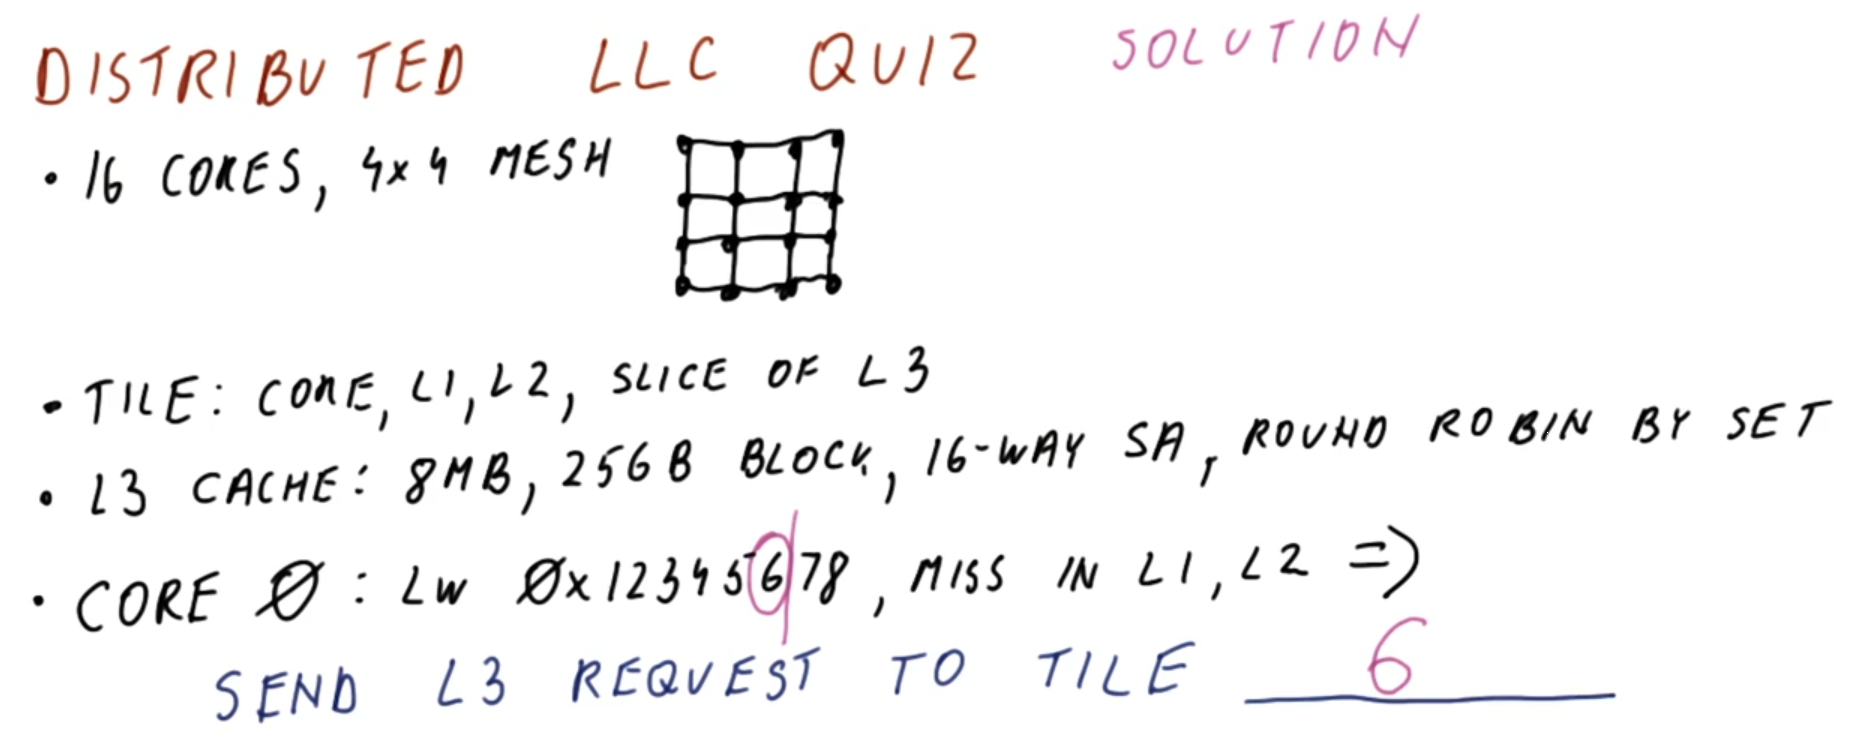 DISTRIBUTED LLC QUIZ SOLUTION
• 16 CORES, 4x4 MESH
• TILE: CORE, L1, L2, SLICE OF L3
• L3 CACHE: 8MB, 256B BLOCK, 16-WAY SA, ROUND ROBIN BY SET
• CORE Ø: LW Øx12345678, MISS IN L1, L2 =>
SEND L3 REQUEST TO TILE 6